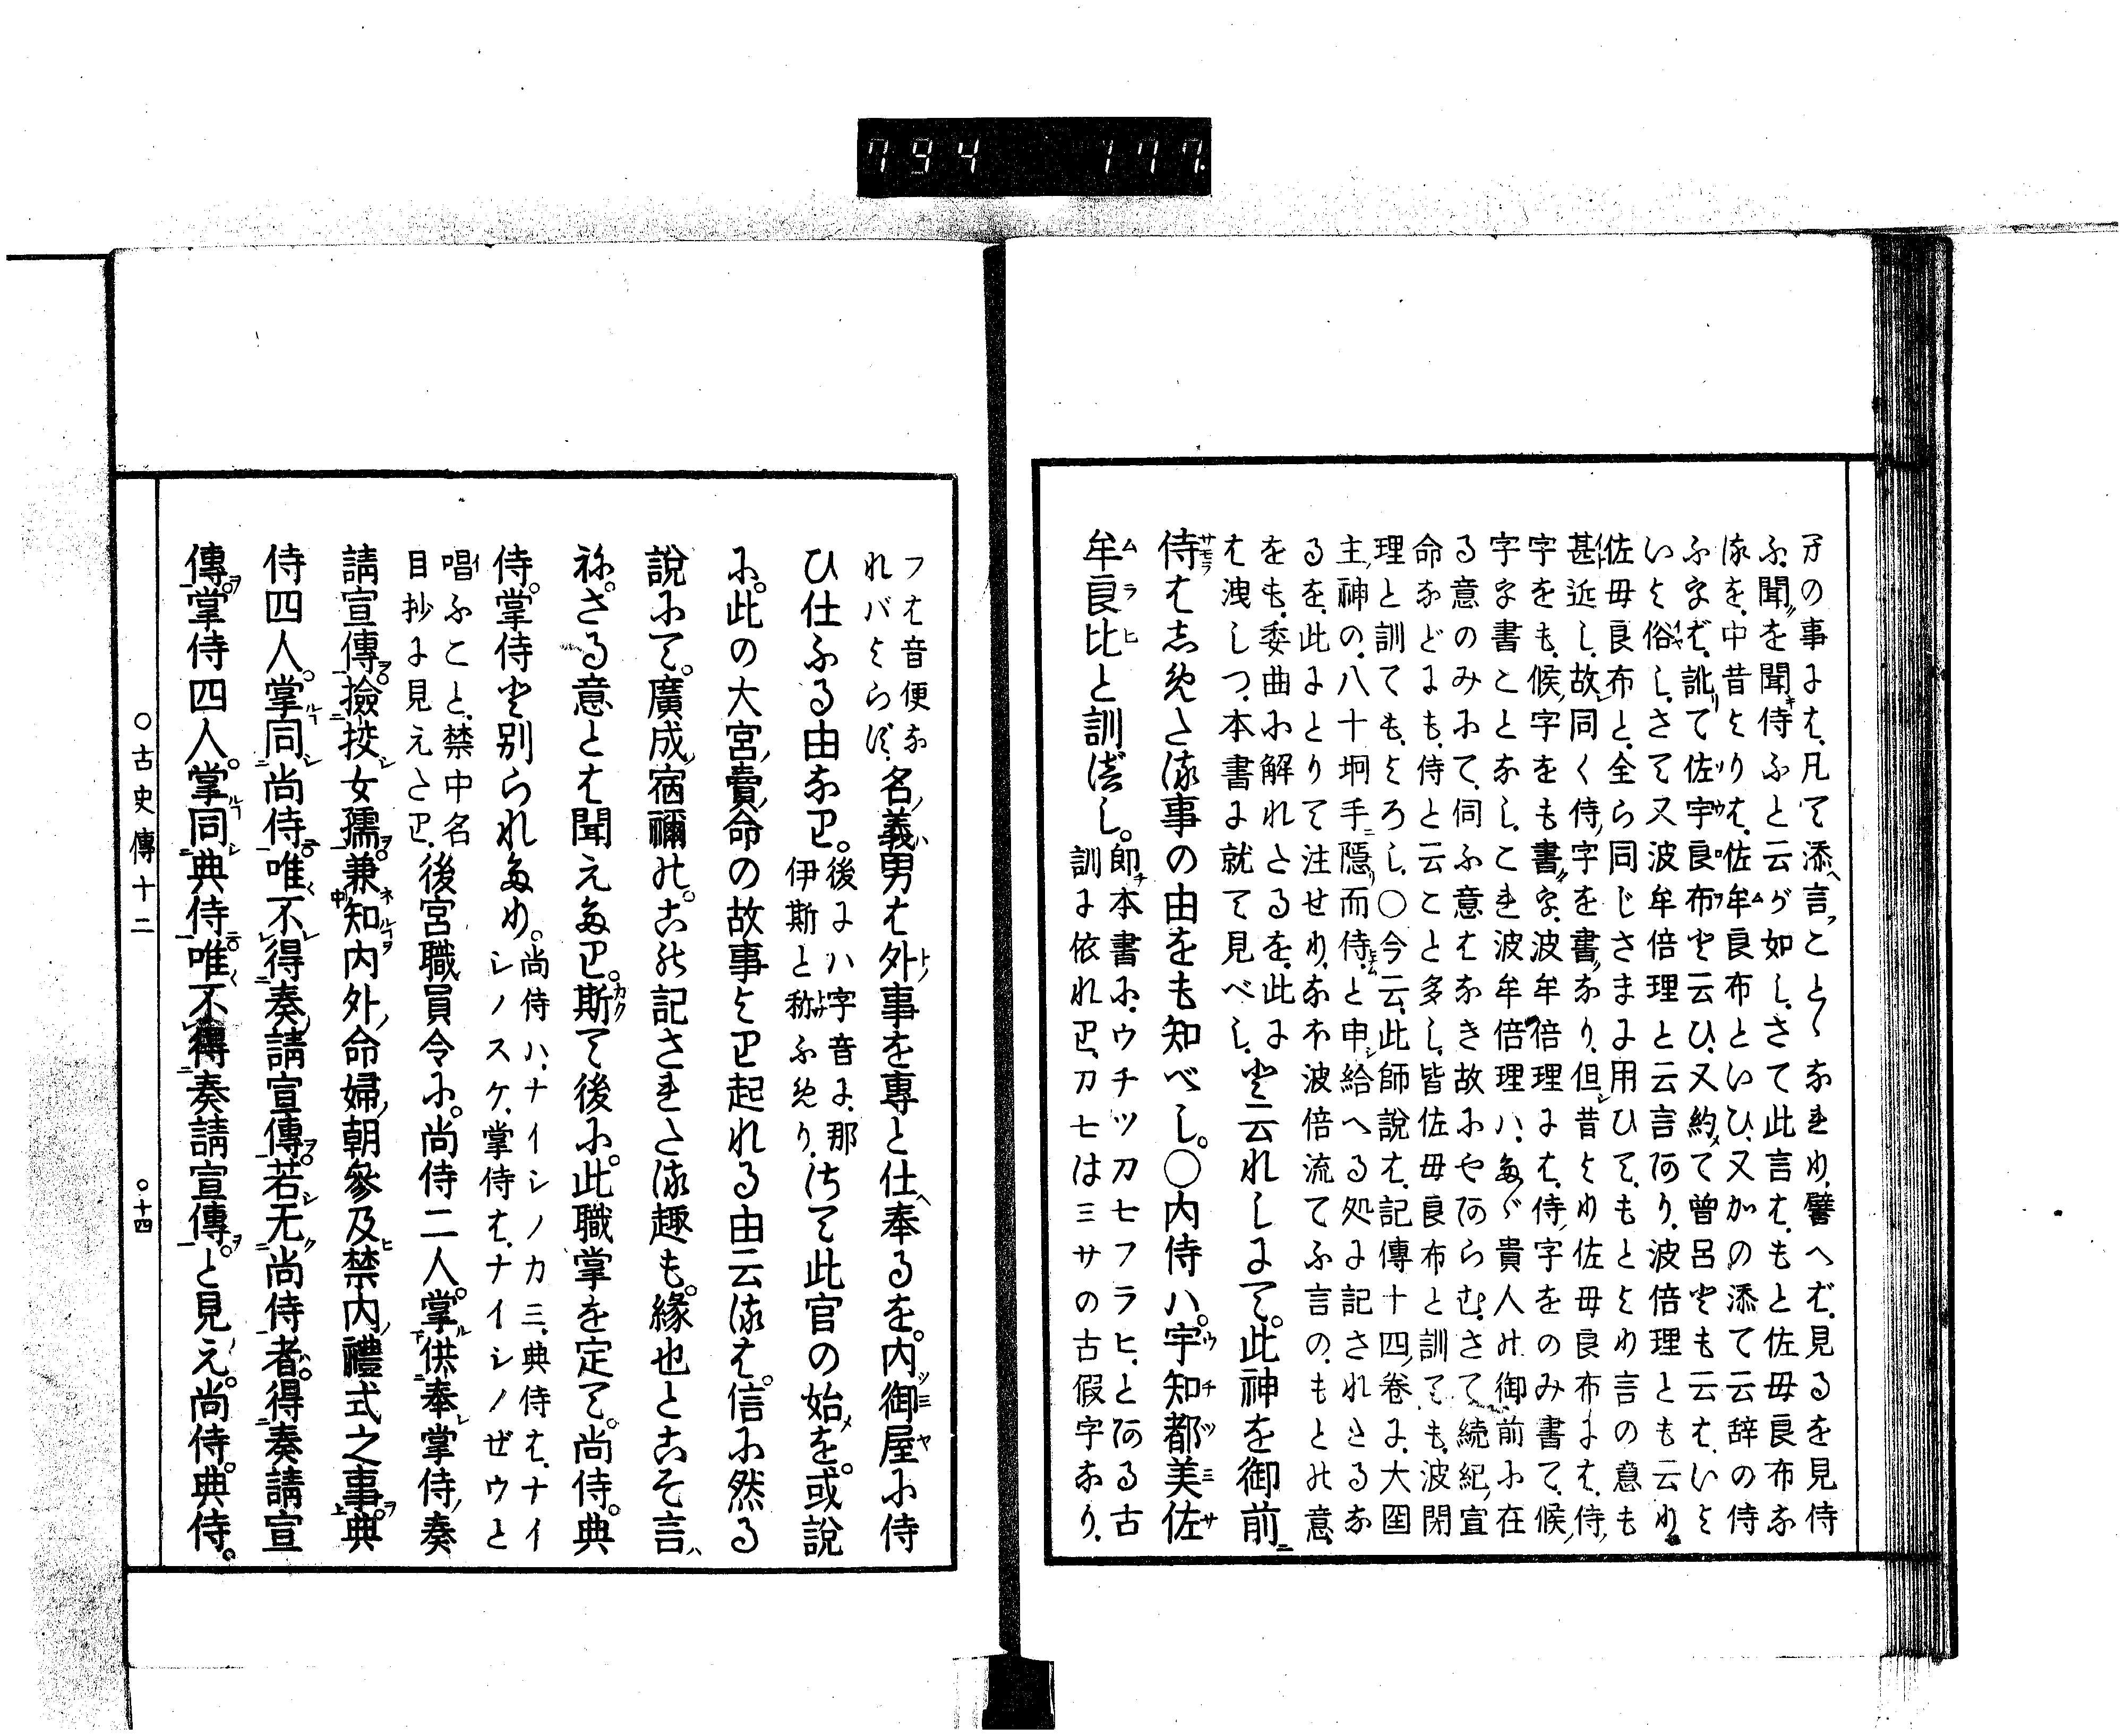 794 177
万の事よは、凡て添言ことゝなれり、譬へば、見るを見侍
ふ、聞を聞侍ふと云が如し、さて此言は、もと佐毋良布な
るを、中昔よりは、佐牟良布といひ、又かの添て云辞の侍
ふ字ば、訛て佐宇良布と云ひ、又約て曾呂とも云は、いと
いと俗し、さて又波牟倍理と云言あり、波倍理とも云り、
佐毋良布と、全ら同じさまに用ひて、もとより言の意も
甚近し、故同く侍字を書なり、但昔より佐毋良布には、侍
字をも、候字をも書て、波牟倍理には、侍字をのみ書て、候
字を書ことなし、これ波牟倍理ハ、たゞ貴人の御前に在
る意のみにて、伺ふ意はなき故にやあらむ、さて続紀宣
命などにも、侍と云こと多し、皆佐毋良布と訓ても、波閇
理と訓ても、よろし、○今云、此師説は、記傳十四巻に、大国
主神の、八十坰手隠而侍と申給へる処に記されたるな
るを、此にとりて注せり、なほ波倍流てふ言の、もとの意
をも、委曲に解れたるを、此に
は洩しつ、本書に就て見べし、と云れしにて。此神を御前
侍はしめたる事の由をも知べし。○内侍ハ。宇知都美佐
牟良比と訓べし。即本書に、ウチツ刀セフラヒ、とある古
訓に依れり、刀セはミサの古假字なり、
フは音便な
ればよらず、名義男は外事を専と仕奉るを。内御屋に侍
ひ仕ふる由なり。後にハ字音に、那
伊斯と称ふめり、けて此官の始を。或説
に。此の大宮賣命の故事より起れる由云るは。信に然る
説にて。廣成宿禰の。古の記されたる趣も。縁也とこそ言
ね。ざる意とは聞えたり。斯て後に。此職掌を定て。尚侍。典
侍。掌侍と別られたり。尚侍ハ、ナイシノカミ、典侍は、ナイ
シノスケ、掌侍は、ナイシノゼウと
唱ふこと、禁中名
目抄に見えたり、後宮職員令に。尚侍二人。掌供奉掌侍奏
請宣傳。撿挍女孺。兼知内外命婦朝參及禁内禮式之事。典
侍四人。掌同尚侍。唯不得奏請宣傳。若无尚侍者。得奏請宣
傳。掌侍四人。掌同典侍。唯不得奏請宣傳。と見え。尚侍。典侍。
○古史傳十二 ○十四